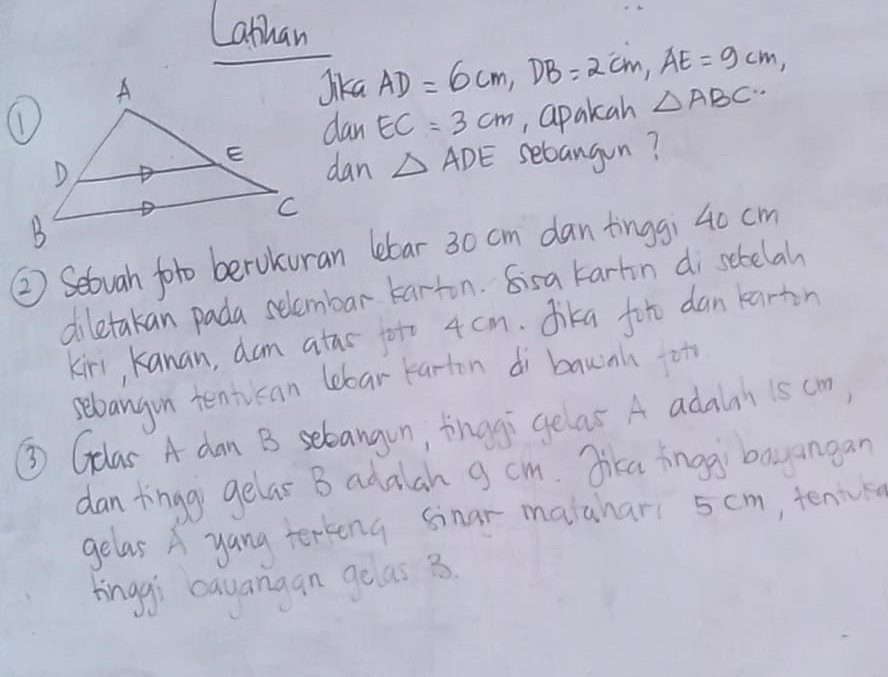 Latihan
① Jika AD = 6 cm, DB = 2 cm, AE = 9 cm,
dan EC = 3 cm, apakah △ABC..
dan △ ADE sebangun ?
A
D
E
B
C
② Sebuah foto berukuran lebar 30 cm dan tinggi 40 cm
diletakan pada selembar karton. Sisa karton di sebelah
kiri, kanan, dan atas foto 4 cm. Jika foto dan karton
sebangun tentukan lebar karton di bawah foto
③ Gelas A dan B sebangun, tinggi gelas A adalah 15 cm,
dan tinggi gelas B adalah 9 cm. Jika tinggi bayangan
gelas A yang terkena sinar matahari 5 cm, tentuka
tinggi bayangan gelas B.